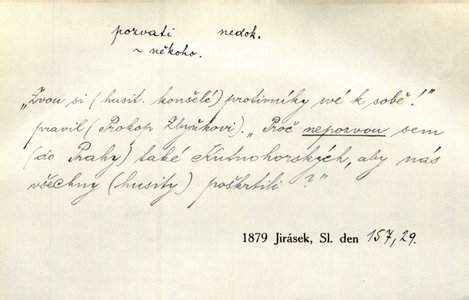 pozvati nedok.
~ někoho.
„Zvou si (husit. konšelé) protivníky své k sobě!"
pravil (Prokop Zbyňkovi). „Proč nepozvou sem
(do Prahy) také Kutnohorských, aby nás
všechny (husity) poškrtili?"
1879 Jirásek, Sl. den 157,29.